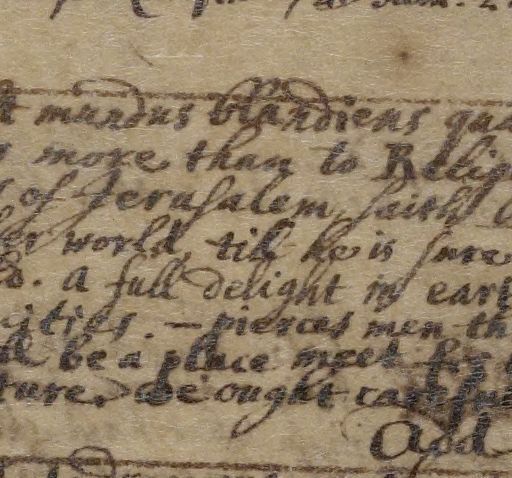 mundus blandiens qua
more than to Relig
of Jerusalem, saith
world, till he is sure
. A full delight in ear
cities. — pierces men th
be a place meet for
ture. We ought careful
Add